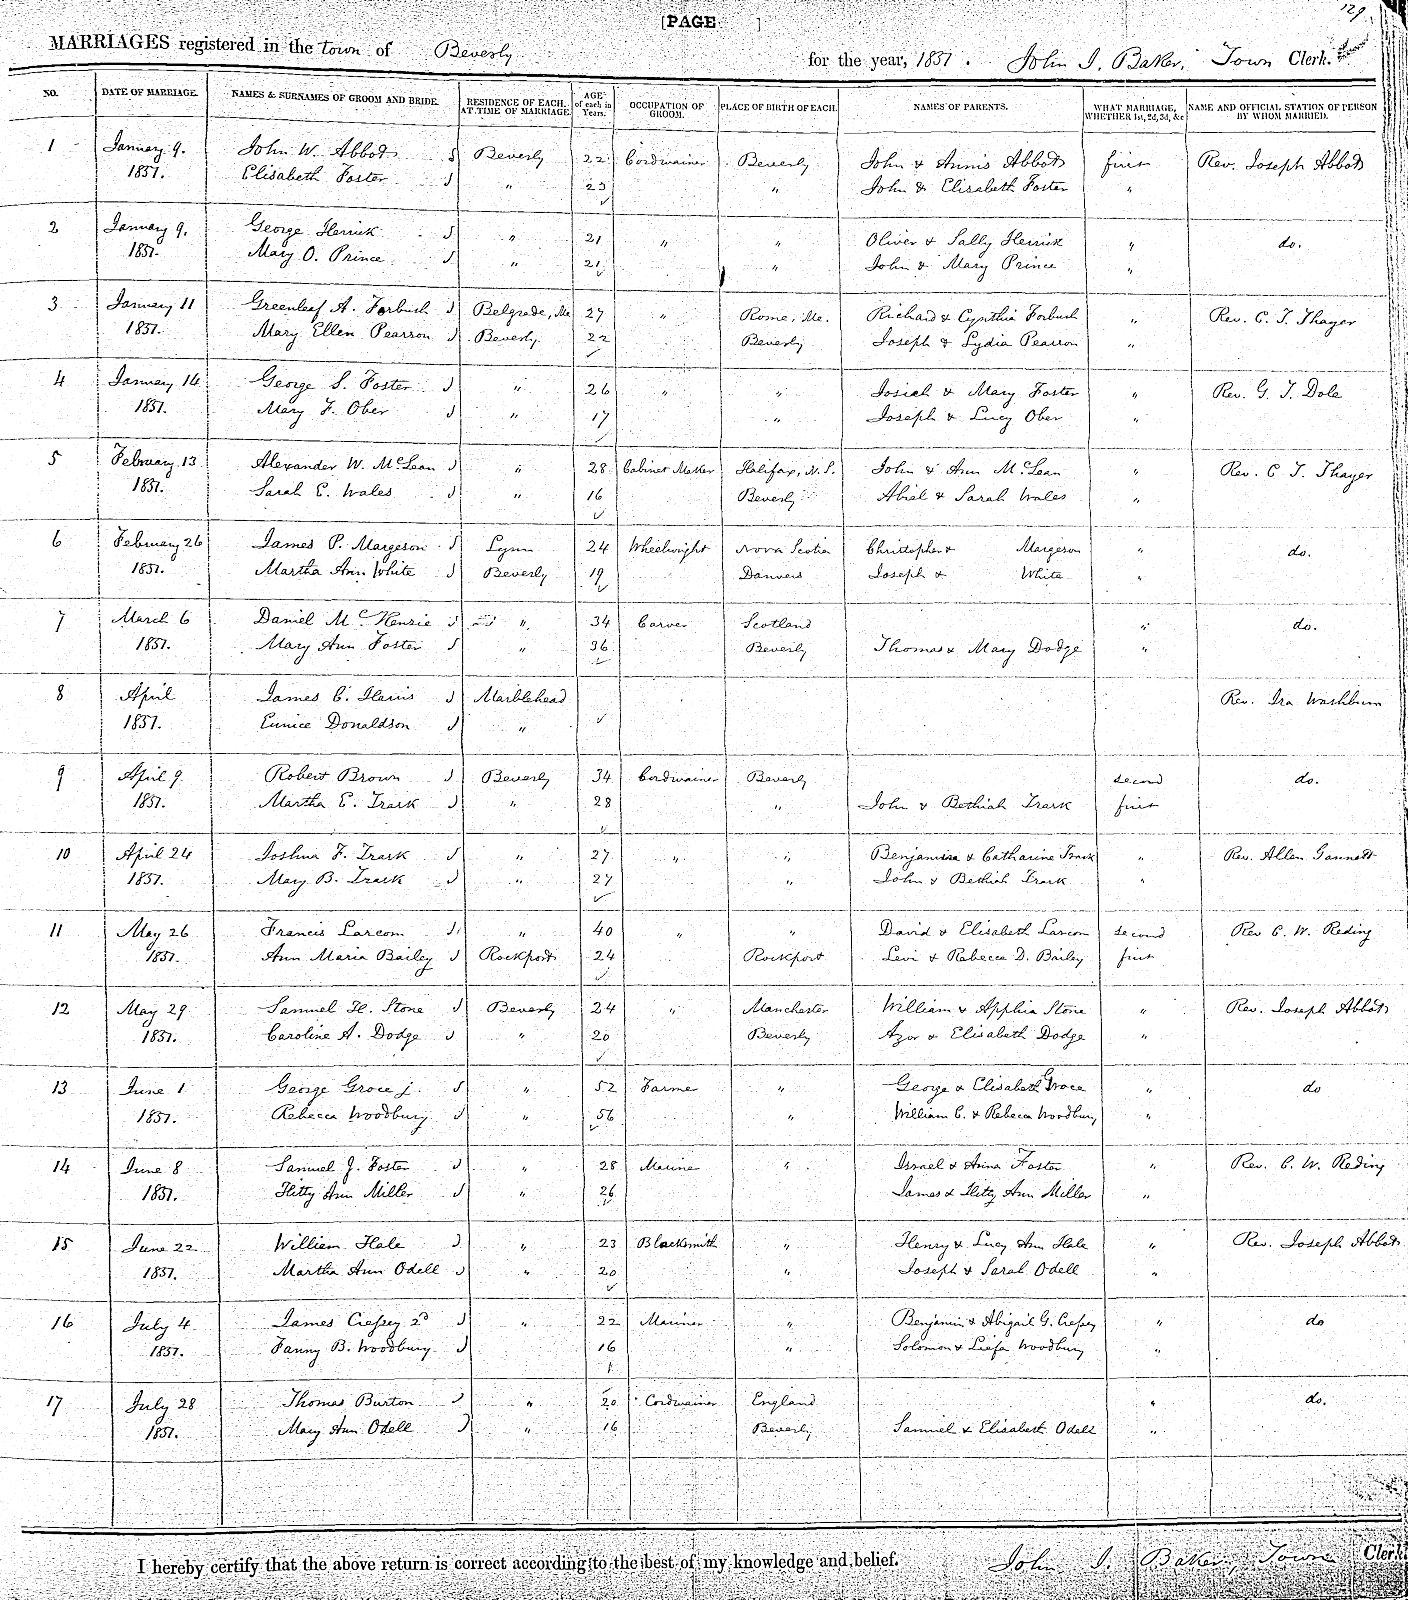 129
[PAGE ]
MARRIAGES registered in the town of Beverly for the year, 1851. John I. Baker, Town Clerk.
NO. DATE OF MARRIAGE. NAMES & SURNAMES OF GROOM AND BRIDE. RESIDENCE OF EACH, AT TIME OF MARRIAGE. AGE of each in Years. OCCUPATION OF GROOM. PLACE OF BIRTH OF EACH. NAMES OF PARENTS. WHAT MARRIAGE, WHETHER 1st, 2d, 3d, &c NAME AND OFFICIAL STATION OF PERSON BY WHOM MARRIED.
1 January 9. John W. Abbott Beverly 22 Cordwainer Beverly John & Annis Abbott first Rev. Joseph Abbott
1851. Elisabeth Foster " 23 " John & Elisabeth Foster "
2 January 9. George Herrick " 21 " " Oliver & Sally Herrick " do.
1851. Mary O. Prince " 21 " John & Mary Prince "
3 January 11 Greenleaf A. Forbush Belgrade, Me 27 " Rome, Me. Richard & Cynthia Forbush " Rev. C. T. Thayer
1851. Mary Ellen Pearson Beverly 22 Beverly Joseph & Lydia Pearson "
4 January 14 George S. Foster " 26 " " Josiah & Mary Foster " Rev. G. T. Dole
1851. Mary F. Ober " 17 " Joseph & Lucy Ober "
5 February 13 Alexander W. McLean " 28 Cabinet Maker Halifax, N.S. John & Ann McLean " Rev. C T. Thayer
1851. Sarah E. Wales " 16 Beverly Abial & Sarah Wales "
6 February 26 James P. Margeson Lynn 24 Wheelwright Nova Scotia Christopher & Margeson " do.
1851. Martha Ann White Beverly 19 Danvers Joseph & White "
7 March 6 Daniel McKenzie " 34 Carver Scotland " do.
1851. Mary Ann Foster " 36 Beverly Thomas & Mary Dodge "
8 April James C. Harris Marblehead Rev. Ira Washburn
1851. Eunice Donaldson "
9 April 9 Robert Brown Beverly 34 Cordwainer Beverly second do.
1851. Martha E. Trask " 28 " John & Bethiah Trask first
10 April 24 Joshua F. Trask " 27 " " Benjamin & Catharine Trask " Rev. Allen Gannett
1851. Mary B. Trask " 27 " John & Bethiah Trask "
11 May 26 Francis Larcom " 40 " " David & Elisabeth Larcom second Rev C. W. Reding
1851. Ann Maria Bailey Rockport 24 Rockport Levi & Rebecca D. Bailey first
12 May 29 Samuel H. Stone Beverly 24 " Manchester William & Apphia Stone " Rev. Joseph Abbott
1851. Caroline A. Dodge " 20 Beverly Azor & Elisabeth Dodge "
13 June 1 George Groce j. " 52 Farmer " George & Elisabeth Groce " do
1851. Rebecca Woodbury " 56 " William C. & Rebecca Woodbury "
14 June 8 Samuel J. Foster " 28 Marine " Israel & Anna Foster " Rev. C. W. Reding
1851. Hitty Ann Miller " 26 James & Hitty Ann Miller "
15 June 22 William Hale " 23 Blacksmith " Henry & Lucy Ann Hale " Rev. Joseph Abbott
1851. Martha Ann Odell " 20 " Joseph & Sarah Odell "
16 July 4 James Cressy 2d " 22 Mariner " Benjamin & Abigail G. Cressy " do
1851. Fanny B. Woodbury 16 " Solomon & Woodbury "
17 July 28 Thomas Burton " 20 Cordwainer England " do.
1851. Mary Ann Odell " 16 Beverly Samuel & Elisabeth Odell "
I hereby certify that the above return is correct according to the best of my knowledge and belief. John I. Baker, Town Clerk.